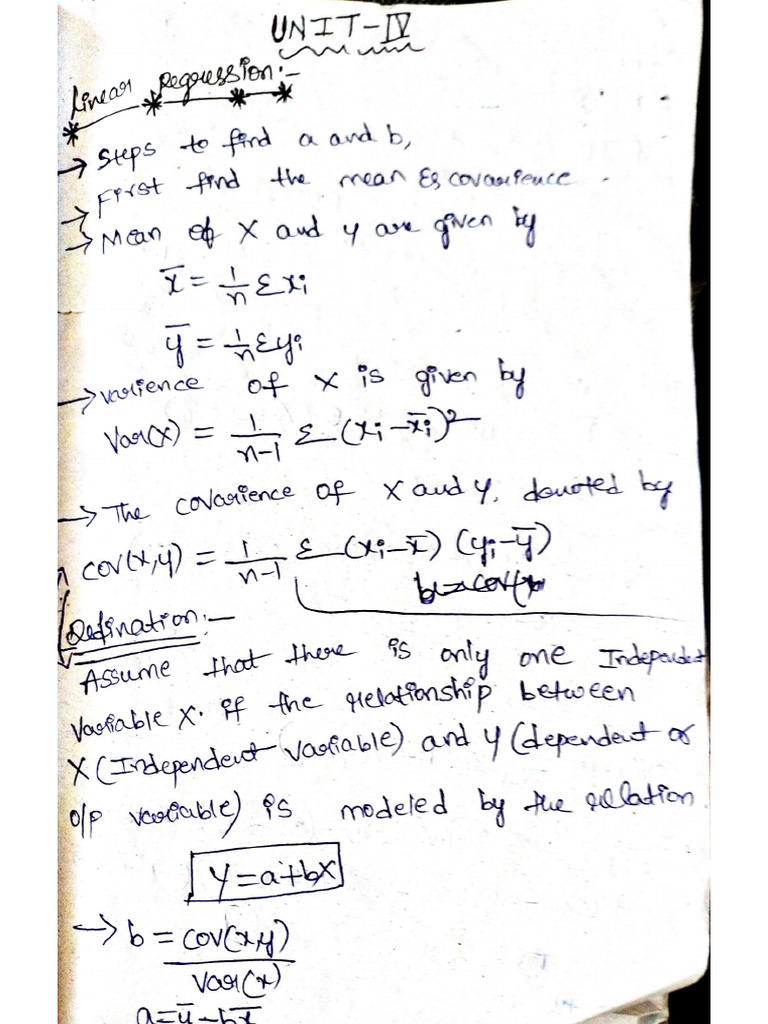 UNIT-IV
Linear Regression:-
→ Steps to find a and b,
→ First find the mean & covarience.
→ Mean of X and y are given by
x̄ = 1/n Σxi
ȳ = 1/n Σyi
→ varience of X is given by
Var(x) = 1/n-1 Σ (xi - x̄i)²
→ The covarience of X and y, denoted by
cov(x,y) = 1/n-1 Σ (xi-x̄) (yi-ȳ)
Defination:-
Assume that there is only one Independent
Variable X. if the relationship between
X (Independent variable) and y (dependent or
o/p variable) is modeled by the relation
y = a+bx
→ b = cov(x,y)/var(x)
a = ȳ - bx̄